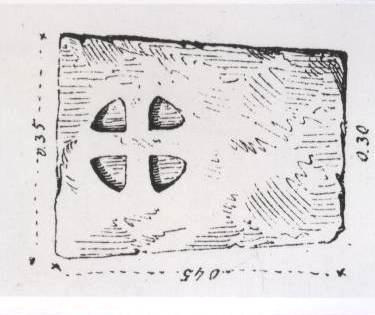 0.35
0.30
0.45